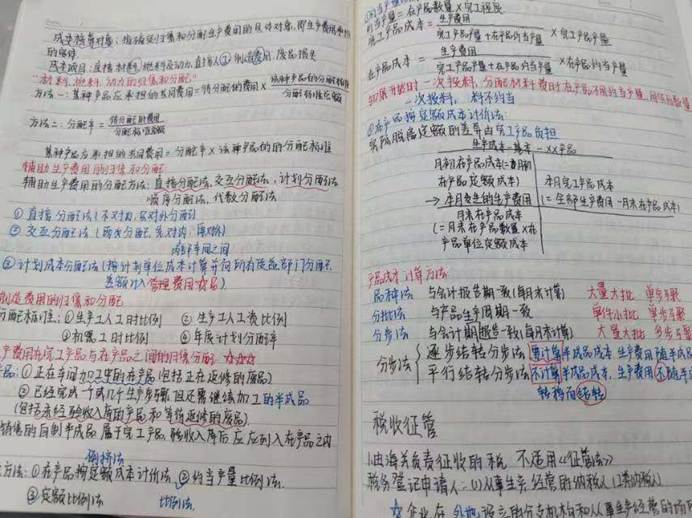 成本核算对象：指确定归集和分配生产费用的具体对象，即生产费用承担
的客体
成本项目：直接材料、燃料及动力、直接人工、制造费用、废品损失
材料、燃料、动力的归集和分配
方法一：某种产品应承担的共同费用＝待分配的费用×该种产品的分配标准/分配标准总额
方法二：分配率＝待分配的费用/分配标准总额
某种产品应承担的共同费用＝分配率×该种产品的的分配标准
辅助生产费用的归集和分配
辅助生产费用的分配方法：直接分配法，交互分配法，计划分配法
顺序分配法，代数分配法
①直接分配法（不对内，只对外分配）
②交互分配法（两次分配，先对内，再对外）
内部车间之间
③计划成本分配法（按计划单位成本计算并向所有受益部门分配
差额计入管理费用）
制造费用的归集和分配
分配标准：①生产工人工时比例 ②生产工人工资比例
③机器工时比例 ④年度计划分配率
产费用在完工产品与在产品之间的归集分配
产品：①正在车间加工的在产品（包括正在返修的废品）
②已经完成一个或几个生产步骤但还需继续加工的半成品
（包括未经验收入库的产品和等待返修的废品）
销售的自制半成品属于完工产品，验收入库后应列入在产品之内
方法：①在产品按定额成本计价法 ②约当产量比例法
③定额比例法 比例法
约当产量＝在产品数量×完工程度
完工产品成本＝生产费用/完工产品产量＋在产品约当产量×完工产品产量
在产品成本＝生产费用/完工产品产量＋在产品约当产量×在产品约当产量
一次投料，分配材料费时在产品不用约当产量，用实际数量
一次投料，料不约当
②在产品按定额成本计价法：
实际脱离定额的差异由完工产品负担
生产成本－基本－XX产品
月初在产品成本
在产品定额成本） 本月完工产品成本
→本月发生的生产费用 （＝全部生产费用－月末在产品成本）
月末在产品成本
（＝月末在产品数量×在
产品单位定额成本
产品成本计算方法
品种法 与会计报告期一致（每月末计算） 大量大批 单步骤
分批法 与产品生产周期一致 单件小批 多步骤
分步法 与会计期报告一致（每月末计算） 大量大批 多步骤
分步法 逐步结转分步法 要计算半成品成本 生产费用随半成品
平行结转分步法 不计算半成品成本，生产费用不随半
转移而结转
税收征管
1.由海关负责征收的税 不适用《征管法》
税务登记申请人：（1）从事生产经营的纳税人
企业在外地设立的分支机构和从事生产经营的场所